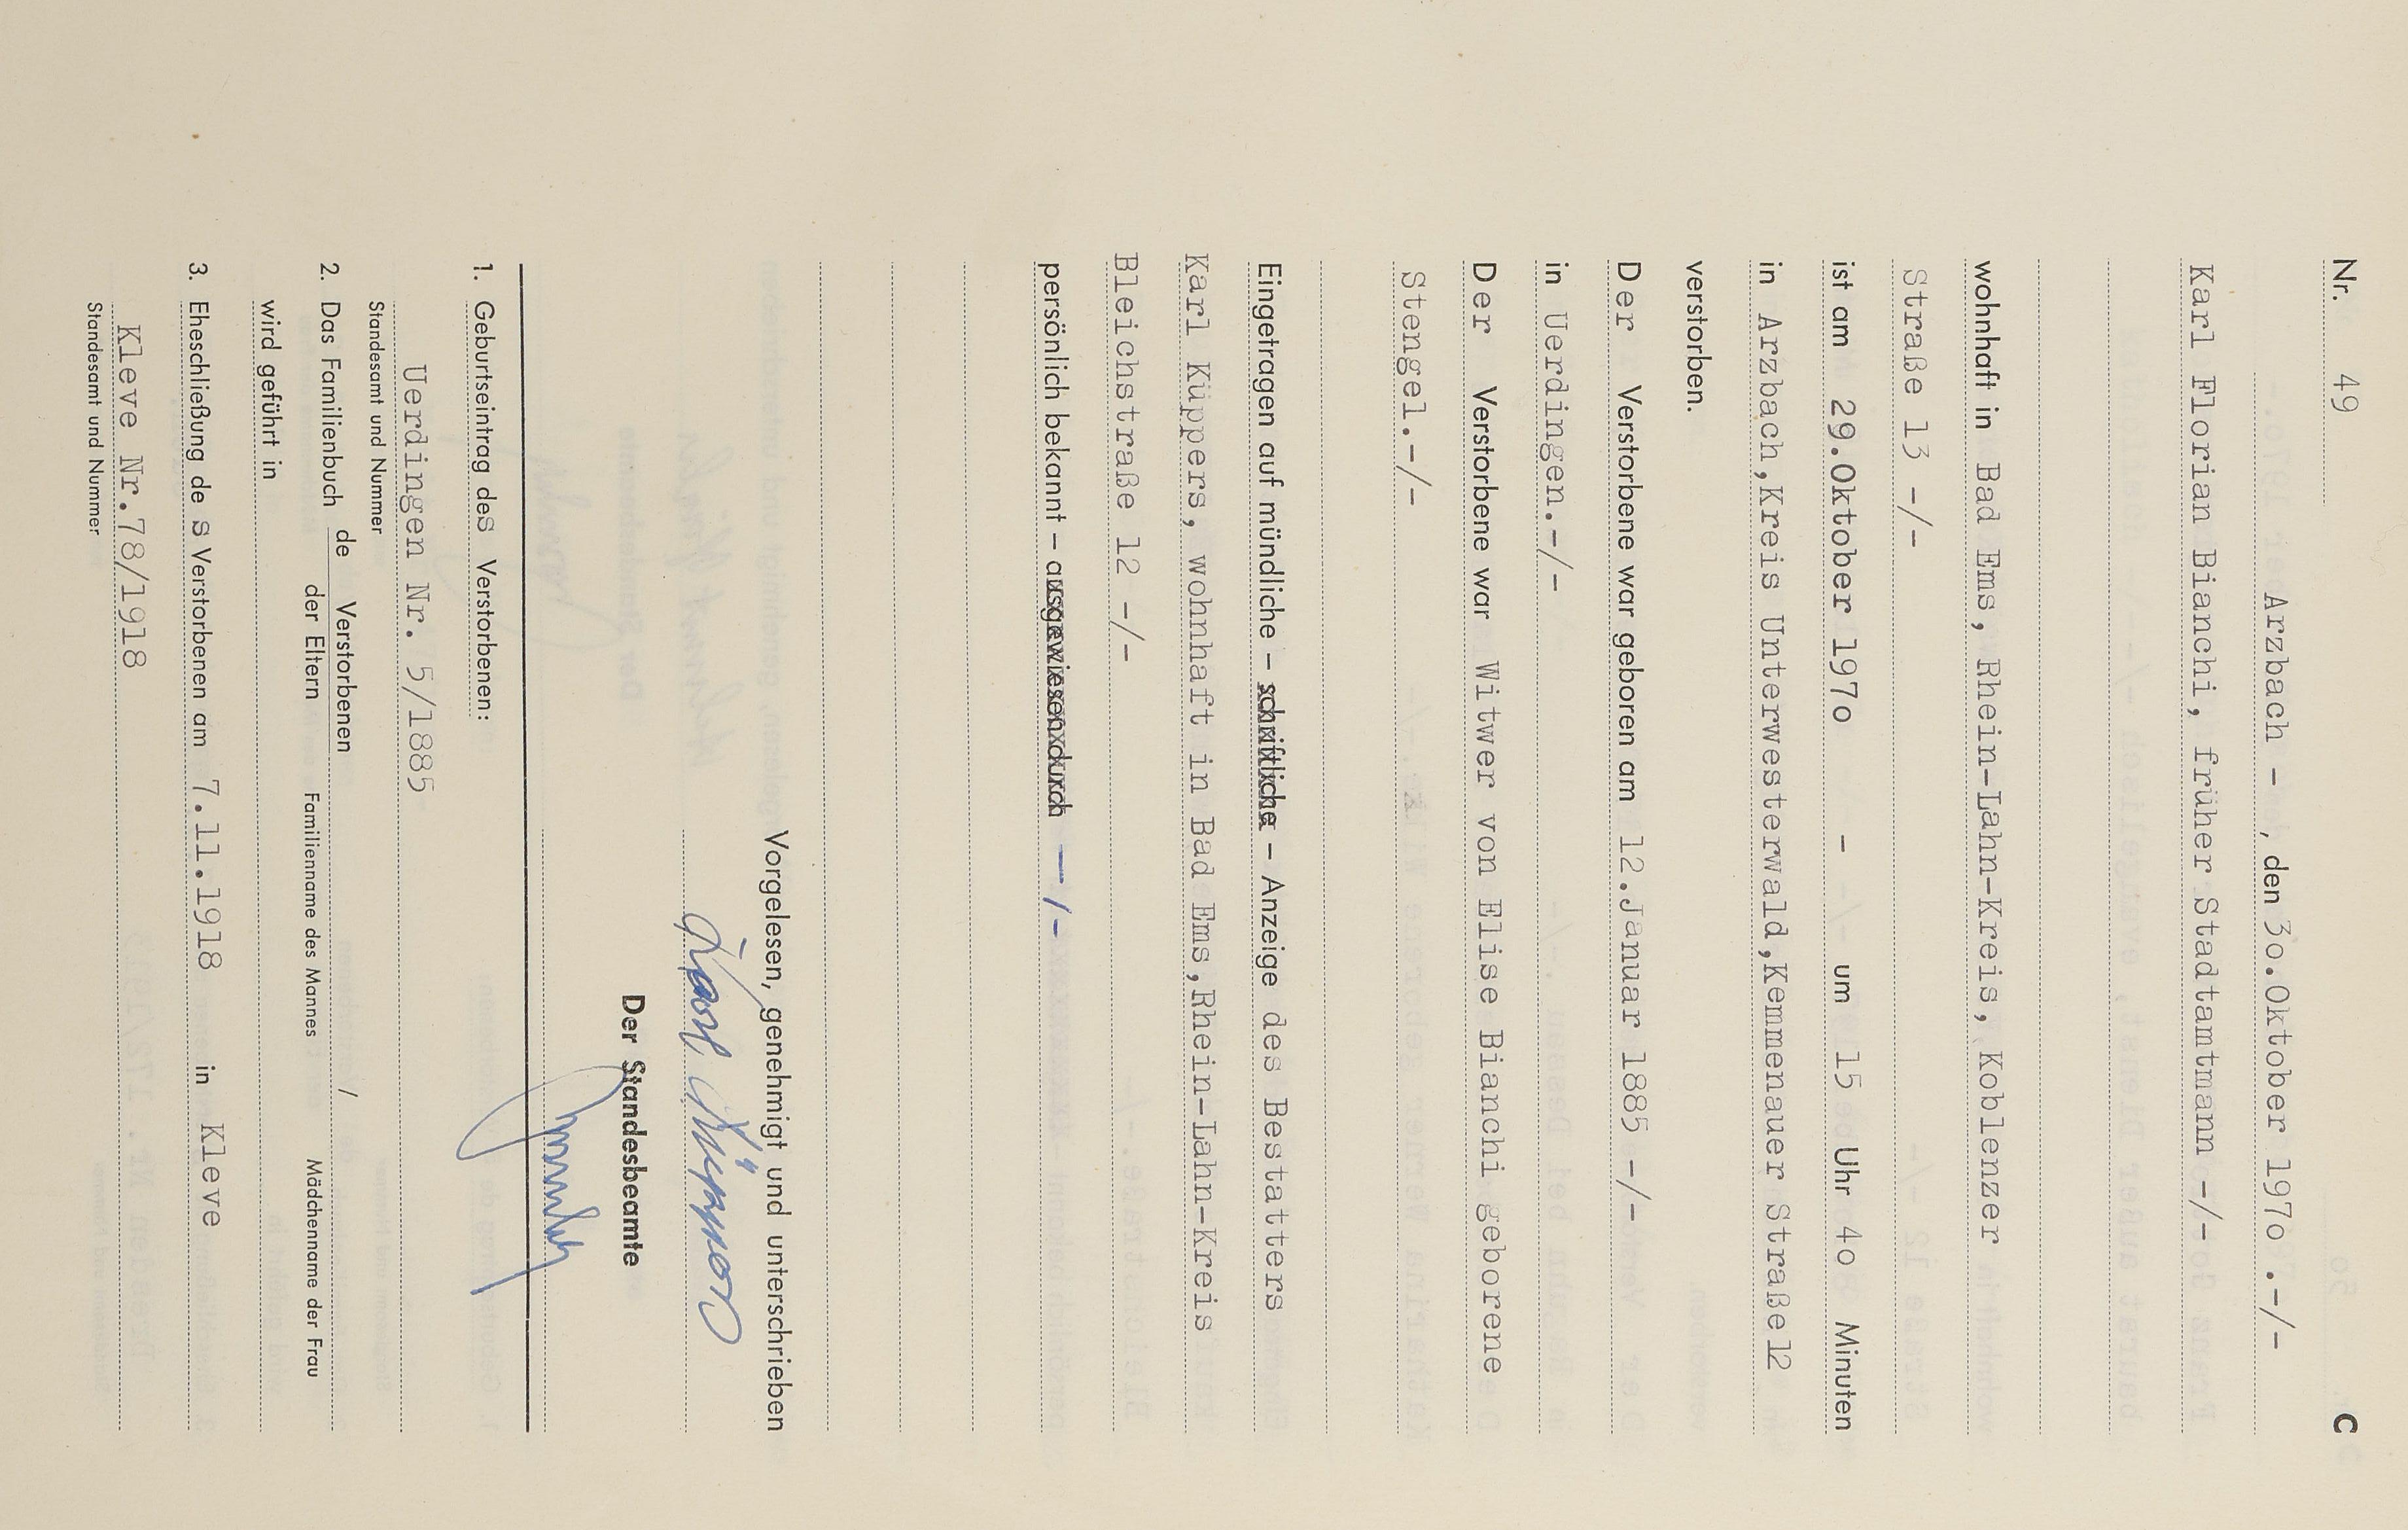 Nr. 49 C
Arzbach - , den 3o.Oktober 197o .-/-
Karl Florian Bianchi, früher Stadtamtmann -/-
wohnhaft in Bad Ems, Rhein-Lahn-Kreis, Koblenzer
Straße 13 -/-
ist am 29.Oktober 197o - um 15 Uhr 4o Minuten
in Arzbach,Kreis Unterwesterwald,Kemmenauer Straße12
verstorben.
Der Verstorbene war geboren am 12.Januar 1885 -/-
in Uerdingen.-/-
Der Verstorbene war Witwer von Elise Bianchi geborene
Stengel.-/-
Eingetragen auf mündliche - schriftliche - Anzeige des Bestatters
Karl Küppers, wohnhaft in Bad Ems,Rhein-Lahn-Kreis
Bleichstraße 12 -/-
persönlich bekannt - ausgewiesen durch -/-
Vorgelesen, genehmigt und unterschrieben
Karl Küppers
Der Standesbeamte
1. Geburtseintrag des Verstorbenen:
Uerdingen Nr. 5/1885
Standesamt und Nummer
2. Das Familienbuch de Verstorbenen /
der Eltern Familienname des Mannes Mädchenname der Frau
wird geführt in
3. Eheschließung de s Verstorbenen am 7.11.1918 in Kleve
Kleve Nr.78/1918
Standesamt und Nummer